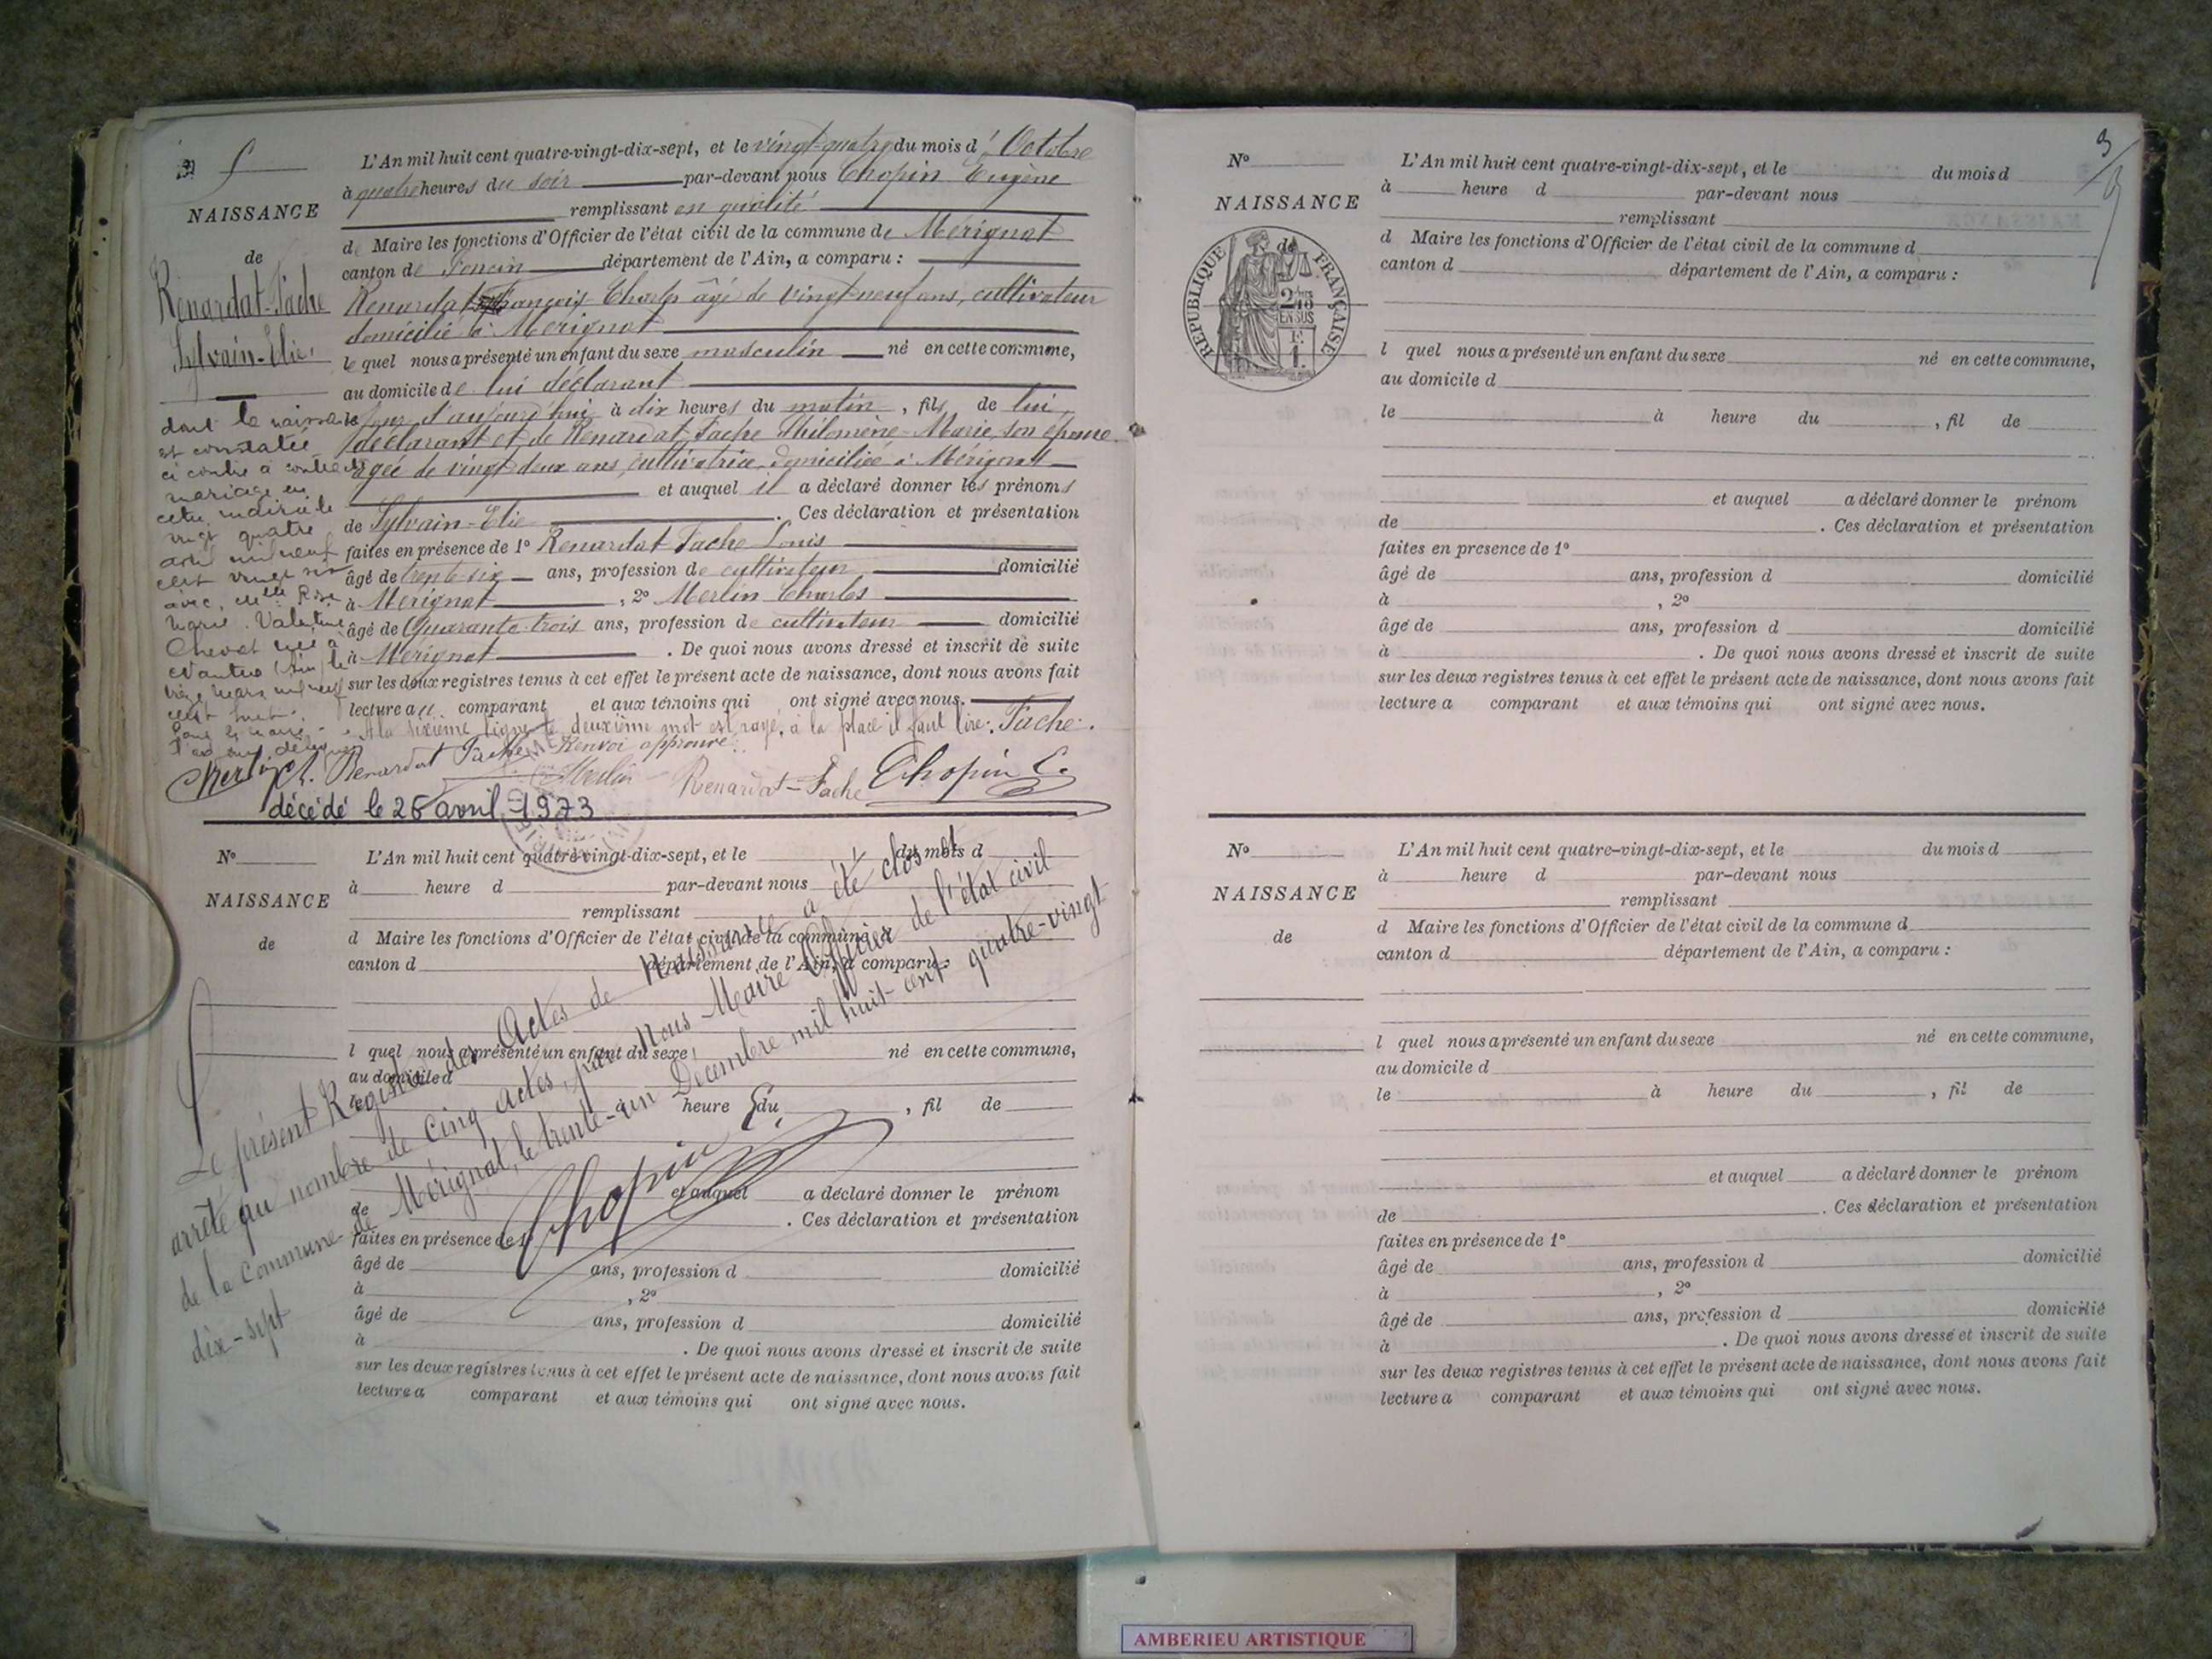 N° 5
NAISSANCE
de
Renardat-Fache
Sylvain-Elie.
dont la naissance
est constatée
ci contre a contracté
mariage en
cette mairie le
vingt quatre
avril mil neuf
cent vingt six
avec Melle Rose
Marie Valentine
Chevat née à
Nantua (Ain) le
mars mil neuf
cent huit.
L'An mil huit cent quatre-vingt-dix-sept, et le vingt-quatre du mois d'Octobre
à quatre heures du soir par-devant nous Chopin Eugène
remplissant en qualité
de Maire les fonctions d'Officier de l'état civil de la commune de Mérignat
canton de Poncin département de l'Ain, a comparu :
Renardat François-Charles âgé de vingt-neuf ans, cultivateur
domicilié à Mérignat
lequel nous a présenté un enfant du sexe masculin né en cette commune,
au domicile de lui déclarant
le jour d'aujourd'hui à dix heures du matin, fils de lui
déclarant et de Renardat Fache Philomène-Marie, son épouse
agée de vingt deux ans, cultivatrice, domiciliée à Mérignat
et auquel il a déclaré donner les prénoms
de Sylvain-Elie. Ces déclaration et présentation
faites en présence de 1° Renardat Fache Louis
âgé de trente-six ans, profession de cultivateur domicilié
à Mérignat, 2° Merlin Charles
âgé de Quarante trois ans, profession de cultivateur domicilié
à Mérignat. De quoi nous avons dressé et inscrit de suite
sur les deux registres tenus à cet effet le présent acte de naissance, dont nous avons fait
lecture au comparant et aux témoins qui ont signé avec nous.
A la sixième ligne le deuxième mot est rayé, à la place il faut lire: Fache.
Renvoi approuvé.
Merlin Ch. Renardat Fache Merlin Renardat-Fache Chopin E.
décédé le 26 avril 1973
N°
NAISSANCE
de
L'An mil huit cent quatre-vingt-dix-sept, et le du mois d
à heure d par-devant nous
remplissant
d Maire les fonctions d'Officier de l'état civil de la commune d
canton d département de l'Ain, a comparu :
l quel nous a présenté un enfant du sexe né en cette commune,
au domicile d
le à heure du , fil de
et auquel a déclaré donner le prénom
de . Ces déclaration et présentation
faites en présence de 1°
âgé de ans, profession d domicilié
à , 2°
âgé de ans, profession d domicilié
à . De quoi nous avons dressé et inscrit de suite
sur les deux registres tenus à cet effet le présent acte de naissance, dont nous avons fait
lecture a comparant et aux témoins qui ont signé avec nous.
Le présent Registre des Actes de Naissance a été clos et
arrêté au nombre de cinq actes, par Nous Maire Officier de l'état civil
de la Commune de Mérignat, le trente-un Décembre mil huit cent quatre-vingt
dix-sept
Chopin E.
3
N°
NAISSANCE
de
RÉPUBLIQUE FRANÇAISE
L'An mil huit cent quatre-vingt-dix-sept, et le du mois d
à heure d par-devant nous
remplissant
d Maire les fonctions d'Officier de l'état civil de la commune d
canton d département de l'Ain, a comparu :
l quel nous a présenté un enfant du sexe né en cette commune,
au domicile d
le à heure du , fil de
et auquel a déclaré donner le prénom
de . Ces déclaration et présentation
faites en présence de 1°
âgé de ans, profession d domicilié
à , 2°
âgé de ans, profession d domicilié
à . De quoi nous avons dressé et inscrit de suite
sur les deux registres tenus à cet effet le présent acte de naissance, dont nous avons fait
lecture a comparant et aux témoins qui ont signé avec nous.
N°
NAISSANCE
de
L'An mil huit cent quatre-vingt-dix-sept, et le du mois d
à heure d par-devant nous
remplissant
d Maire les fonctions d'Officier de l'état civil de la commune d
canton d département de l'Ain, a comparu :
l quel nous a présenté un enfant du sexe né en cette commune,
au domicile d
le à heure du , fil de
et auquel a déclaré donner le prénom
de . Ces déclaration et présentation
faites en présence de 1°
âgé de ans, profession d domicilié
à , 2°
âgé de ans, profession d domicilié
à . De quoi nous avons dressé et inscrit de suite
sur les deux registres tenus à cet effet le présent acte de naissance, dont nous avons fait
lecture a comparant et aux témoins qui ont signé avec nous.
AMBERIEU ARTISTIQUE